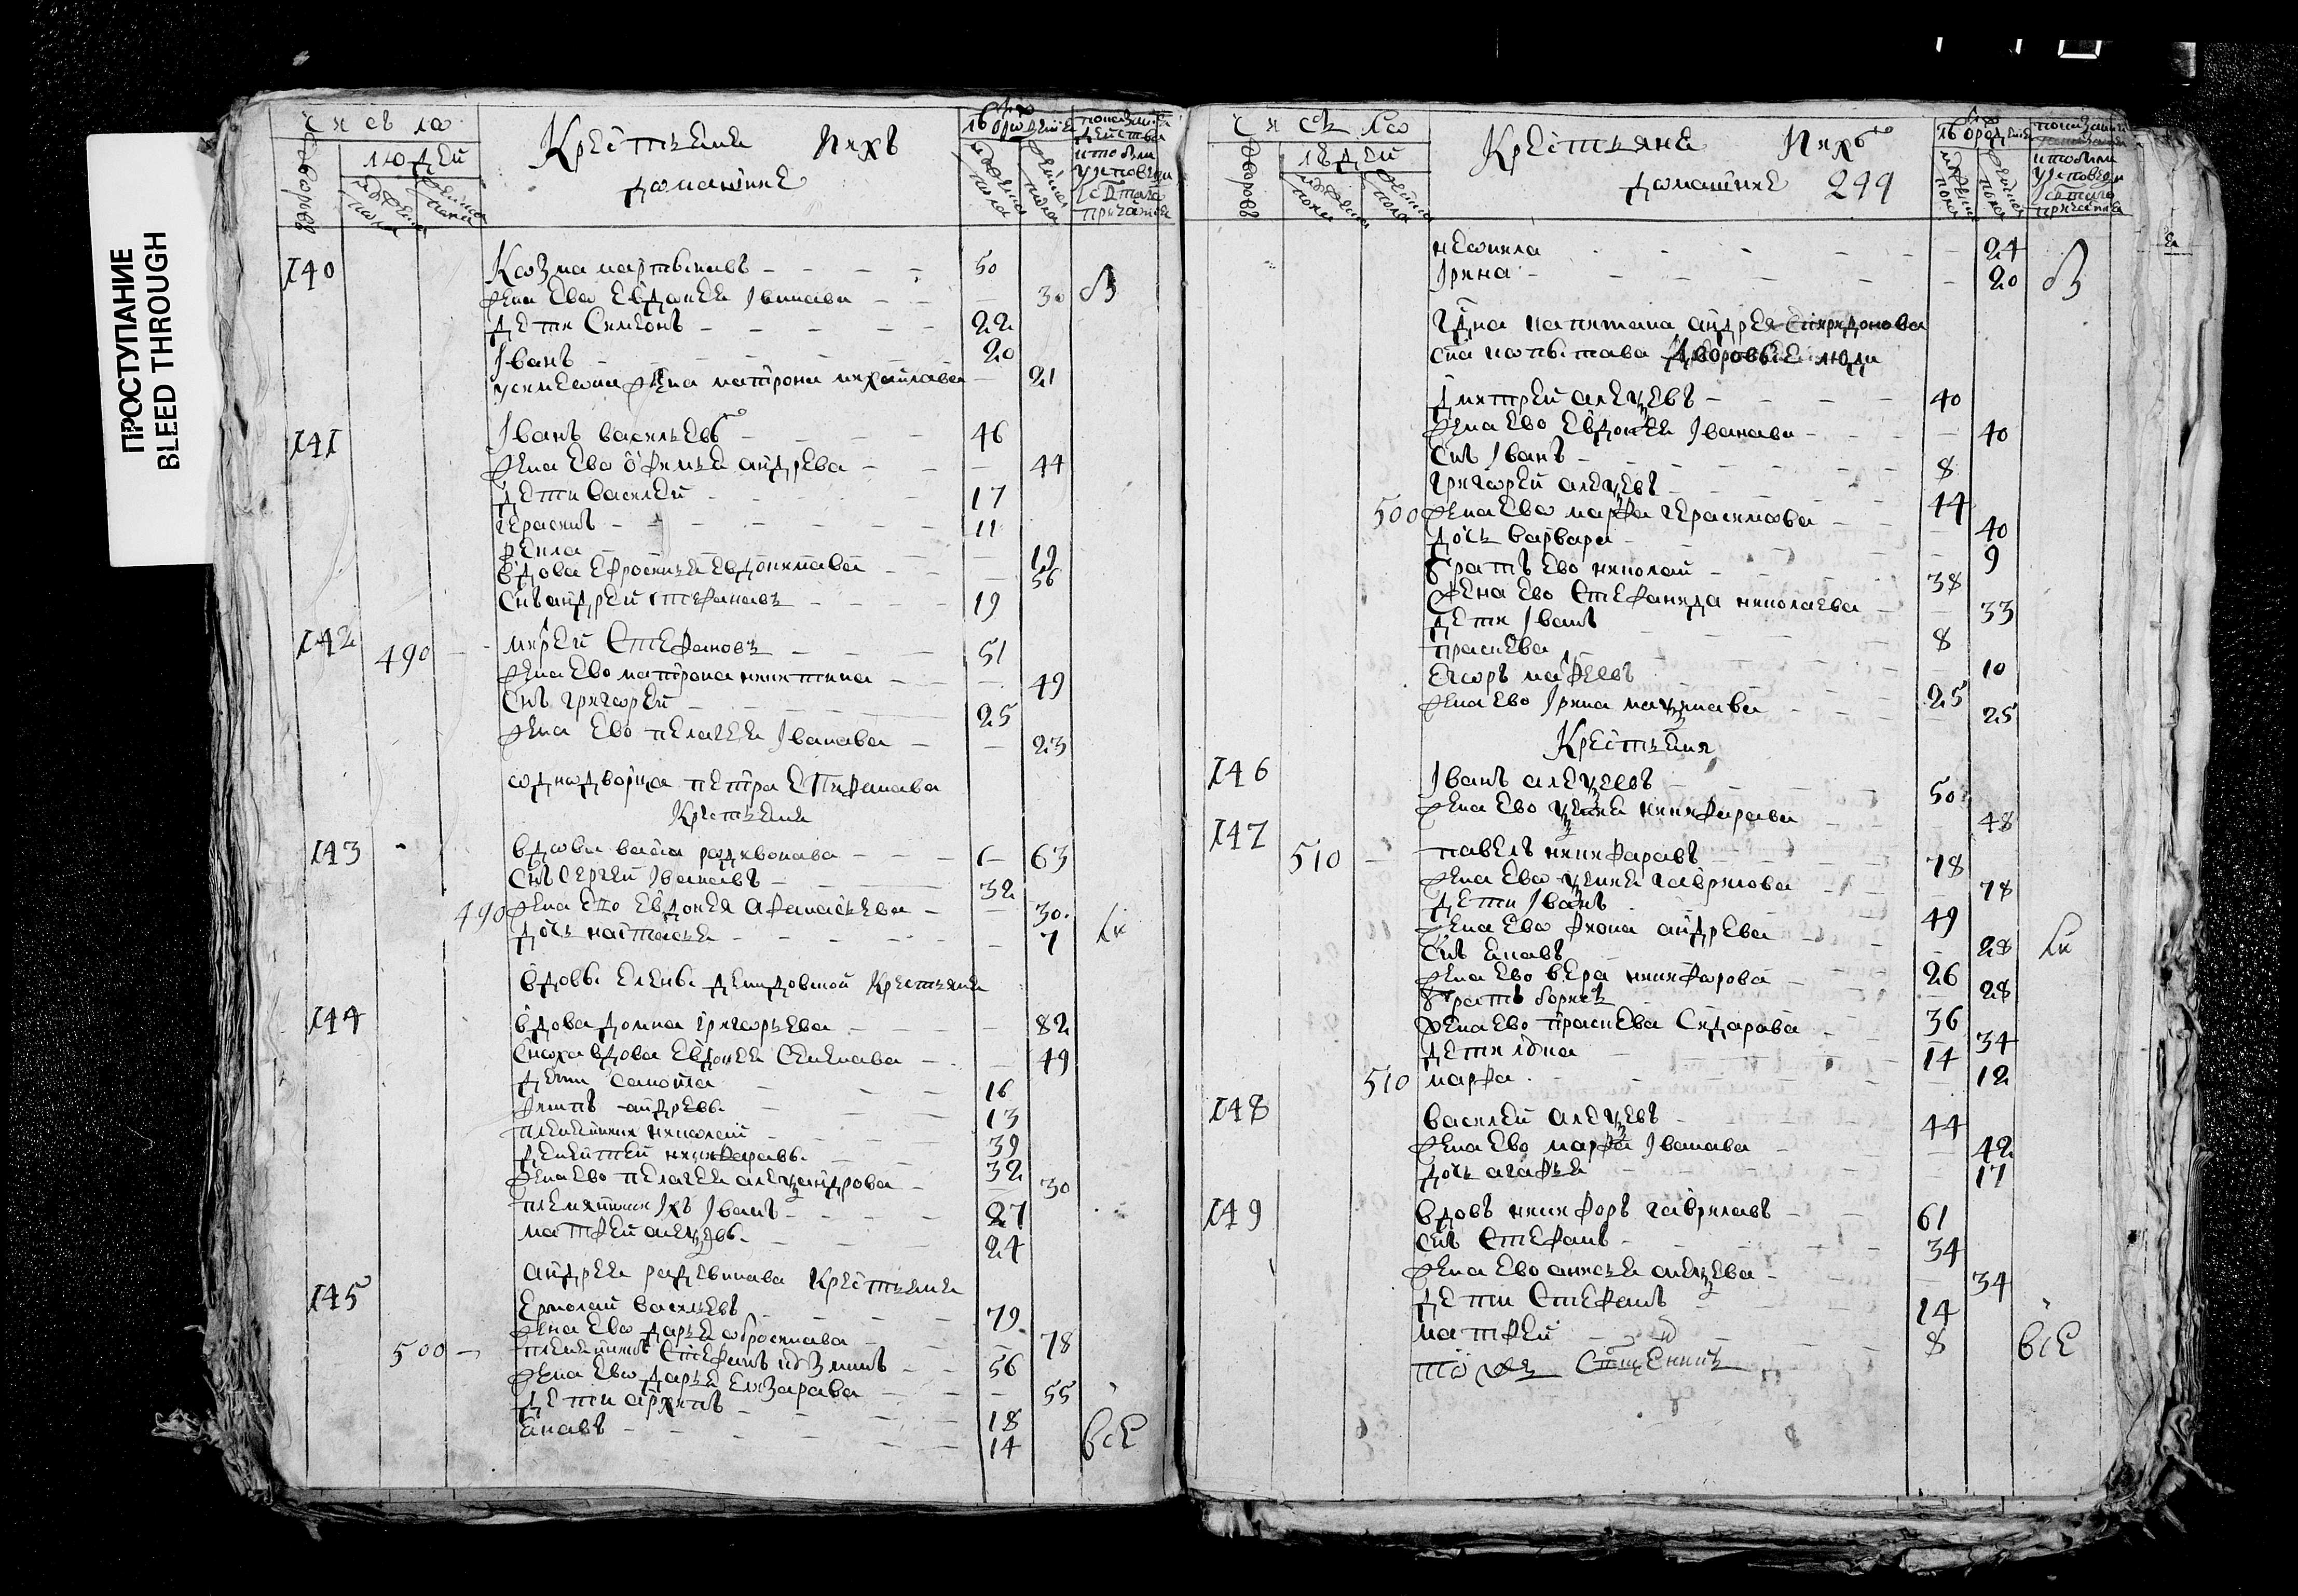 ПРОСТУПАНИЕ
BLEED THROUGH
число
дворовъ
людей
мужеска полу
женска полу
Крестьяне ихъ
домашние
мужеска пола
женска пола
140 Козма мартыновъ 50
жена ево Евдокея Iванова 30
дети Симеонъ 22
Iванъ 20
усимеона жена матрона михаилова 21
141 Iванъ васильевъ 46
жена ево офимья андрева 44
дети василей 17
герасимъ 11
фекла 19
вдова Ефросинья Евдокимова 56
снъ андрей стефановъ 19
142 490 Стефановъ 51
жена ево матрона никитина 49
снъ григорей 25
жена ево пелагея Iванова 23
однодворца петра Епифанова
Крестьяне
143 вдова васа родивонова 63
снъ сергей Iвановъ 32
490 жена ево Евдокея Афанасьева 30
дочь настасья 7
вдовы елены демидовской крестьяне
144 вдова домна григорьева 82
сноха вдова Евдокея Семенова 49
дети 16
филипъ андревъ 13
племянники николай 39
никифоровъ 32
жена ево пелагея алеѯандрова 30
племянники Iхъ Iванъ 27
матфей алеѯевъ 24
андрея родивонова Крестьяне
145 Ермолай васильевъ 79
жена ево дарья аброснмова 78
500 племянникъ Стефанъ козминъ 56
жена ево дарья елизарова 55
дети архипъ 18
ековъ 14 все
число
дворовъ
людей
мужеска полу
женска пола
Крестьяне ихъ
домашние 299
мужеска пола
женска пола
неонила 24
Iрина 20
гдна капитана андрея спиридонова
сна копытова дворовые люди
димтрей алеѯевъ 40
жена ево Евдокея Iванова 40
снъ Iванъ 8
григорей алеѯевъ 44
500 жена ево марфа герасимова 40
дочь варвара 9
братъ ево николай 38
жена ево Стефанида николаева 33
дети Iванъ 8
прасковья 10
Егоръ мафеевъ 25
жена ево Iрина маѯимова 25
Крестьяня
146 Iванъ алеѯеевъ 50
жена ево ѯенья никифорова 48
147 510 павелъ никифоровъ 78
жена ево ѯенья гаврилова 78
дети Iванъ 49
жена ево фиона андрева 28
снъ ековъ 26
жена ево вера никифорова 28
братъ борисъ 36
жена ево прасковья Сидорова 34
дети 14
510 марфа 12
148 василей алеѯевъ 44
жена ево марфа Iванова 42
дочь агафья 17
149 вдовъ никифоръ гавриловъ 61
снъ Стефанъ 34
жена ево анисья алеѯева 34
дети Стефанъ 14
матфей 8 все